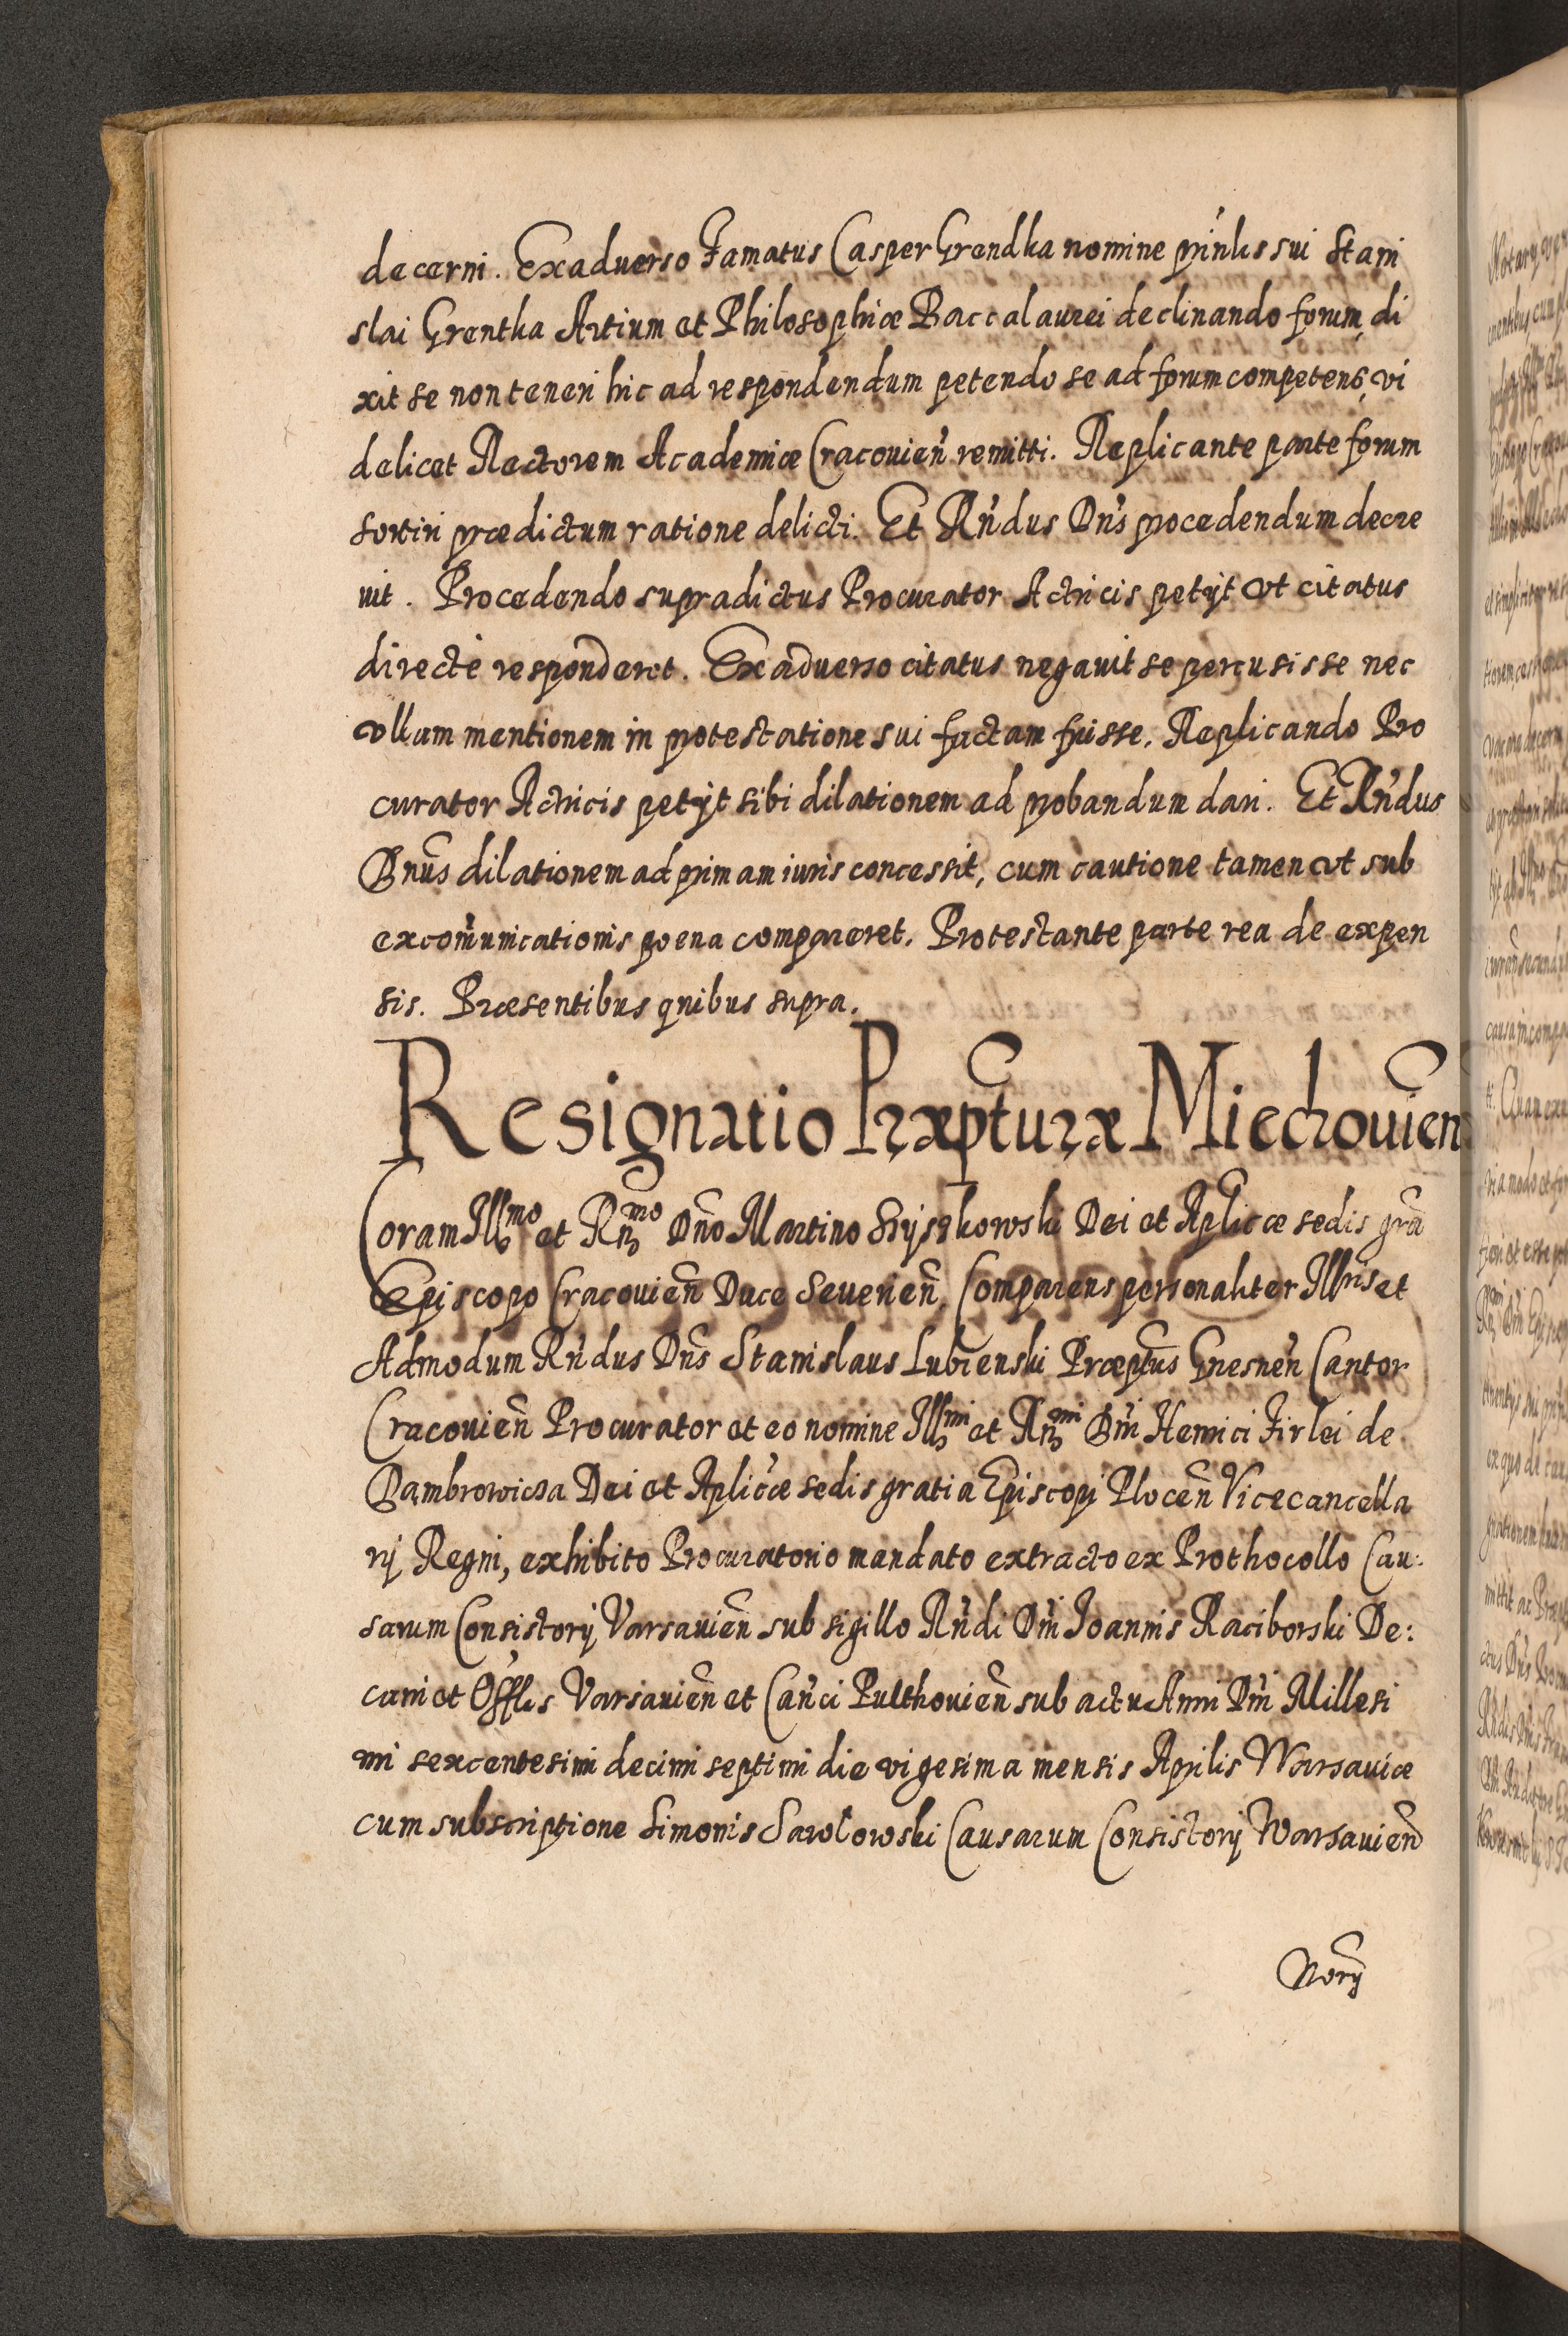 decerni. Ex aduerso Famatus Casper Grendka nomine prinlis sui Stani
slai Grentka Artium et Philosophiæ Baccalaurei declinando forum, di
xit se non teneri hic ad respondendum petendo se ad forum competens, vi
delicet Rectorem Academiæ Cracouien̄ remitti. Replicante parte forum
sortiri prædictum ratione delicti. Et Rn̄dus Dn̄s procedendum decre
uit. Procedendo supradictus Procurator Actricis petijt vt citatus
directè responderet. Ex aduerso citatus negauit se percusisse nec
vllam mentionem in protestatione sui factam fuisse. Replicando Pro
curator Actricis petijt sibi dilationem ad probandum dari. Et Rn̄dus
Dnūs dilationem ad primam iuris concessit, cum cautione tamen vt sub
excom̄unicationis poena compareret. Protestante parte rea de expen
sis. Præsentibus quibus supra.
Resignatio Præpt̄uræ Miechouien̄
Coram Illmo et Rn̄mo Dn̄o Martino Szyszkowski Dei et Aplicæ sedis grā
Episcopo Cracouien̄ Duce Seuerien̄, Comparens personaliter Illris et
Admodum Rn̄dus Dn̄s Stanislaus Lubienski Præptūs Gnesnen̄ Cantor
Cracouien̄ Procurator et eo nomine Illmi et Rn̄mi Dn̄i Henrici Firlei de
Dambrowicza Dei et Aplicæ sedis gratia Episcopi Plocen̄ Vicecancella
rij Regni, exhibito Procuratorio mandato extracto ex Prothocollo Cau:
sarum Consistorij Varsauien̄ sub sigillo Rn̄di Dn̄i Joannis Raciborski De:
cani et Offlis Varsauien̄ et Can̄ci Pulthouien̄ sub actu Anni Dn̄i Millesi
mi sexcentesimi decimi septimi die vigesima mensis Aprilis Warsauiæ
cum subscriptione Simonis Causarum Consistorij Warsauien̄
Norij